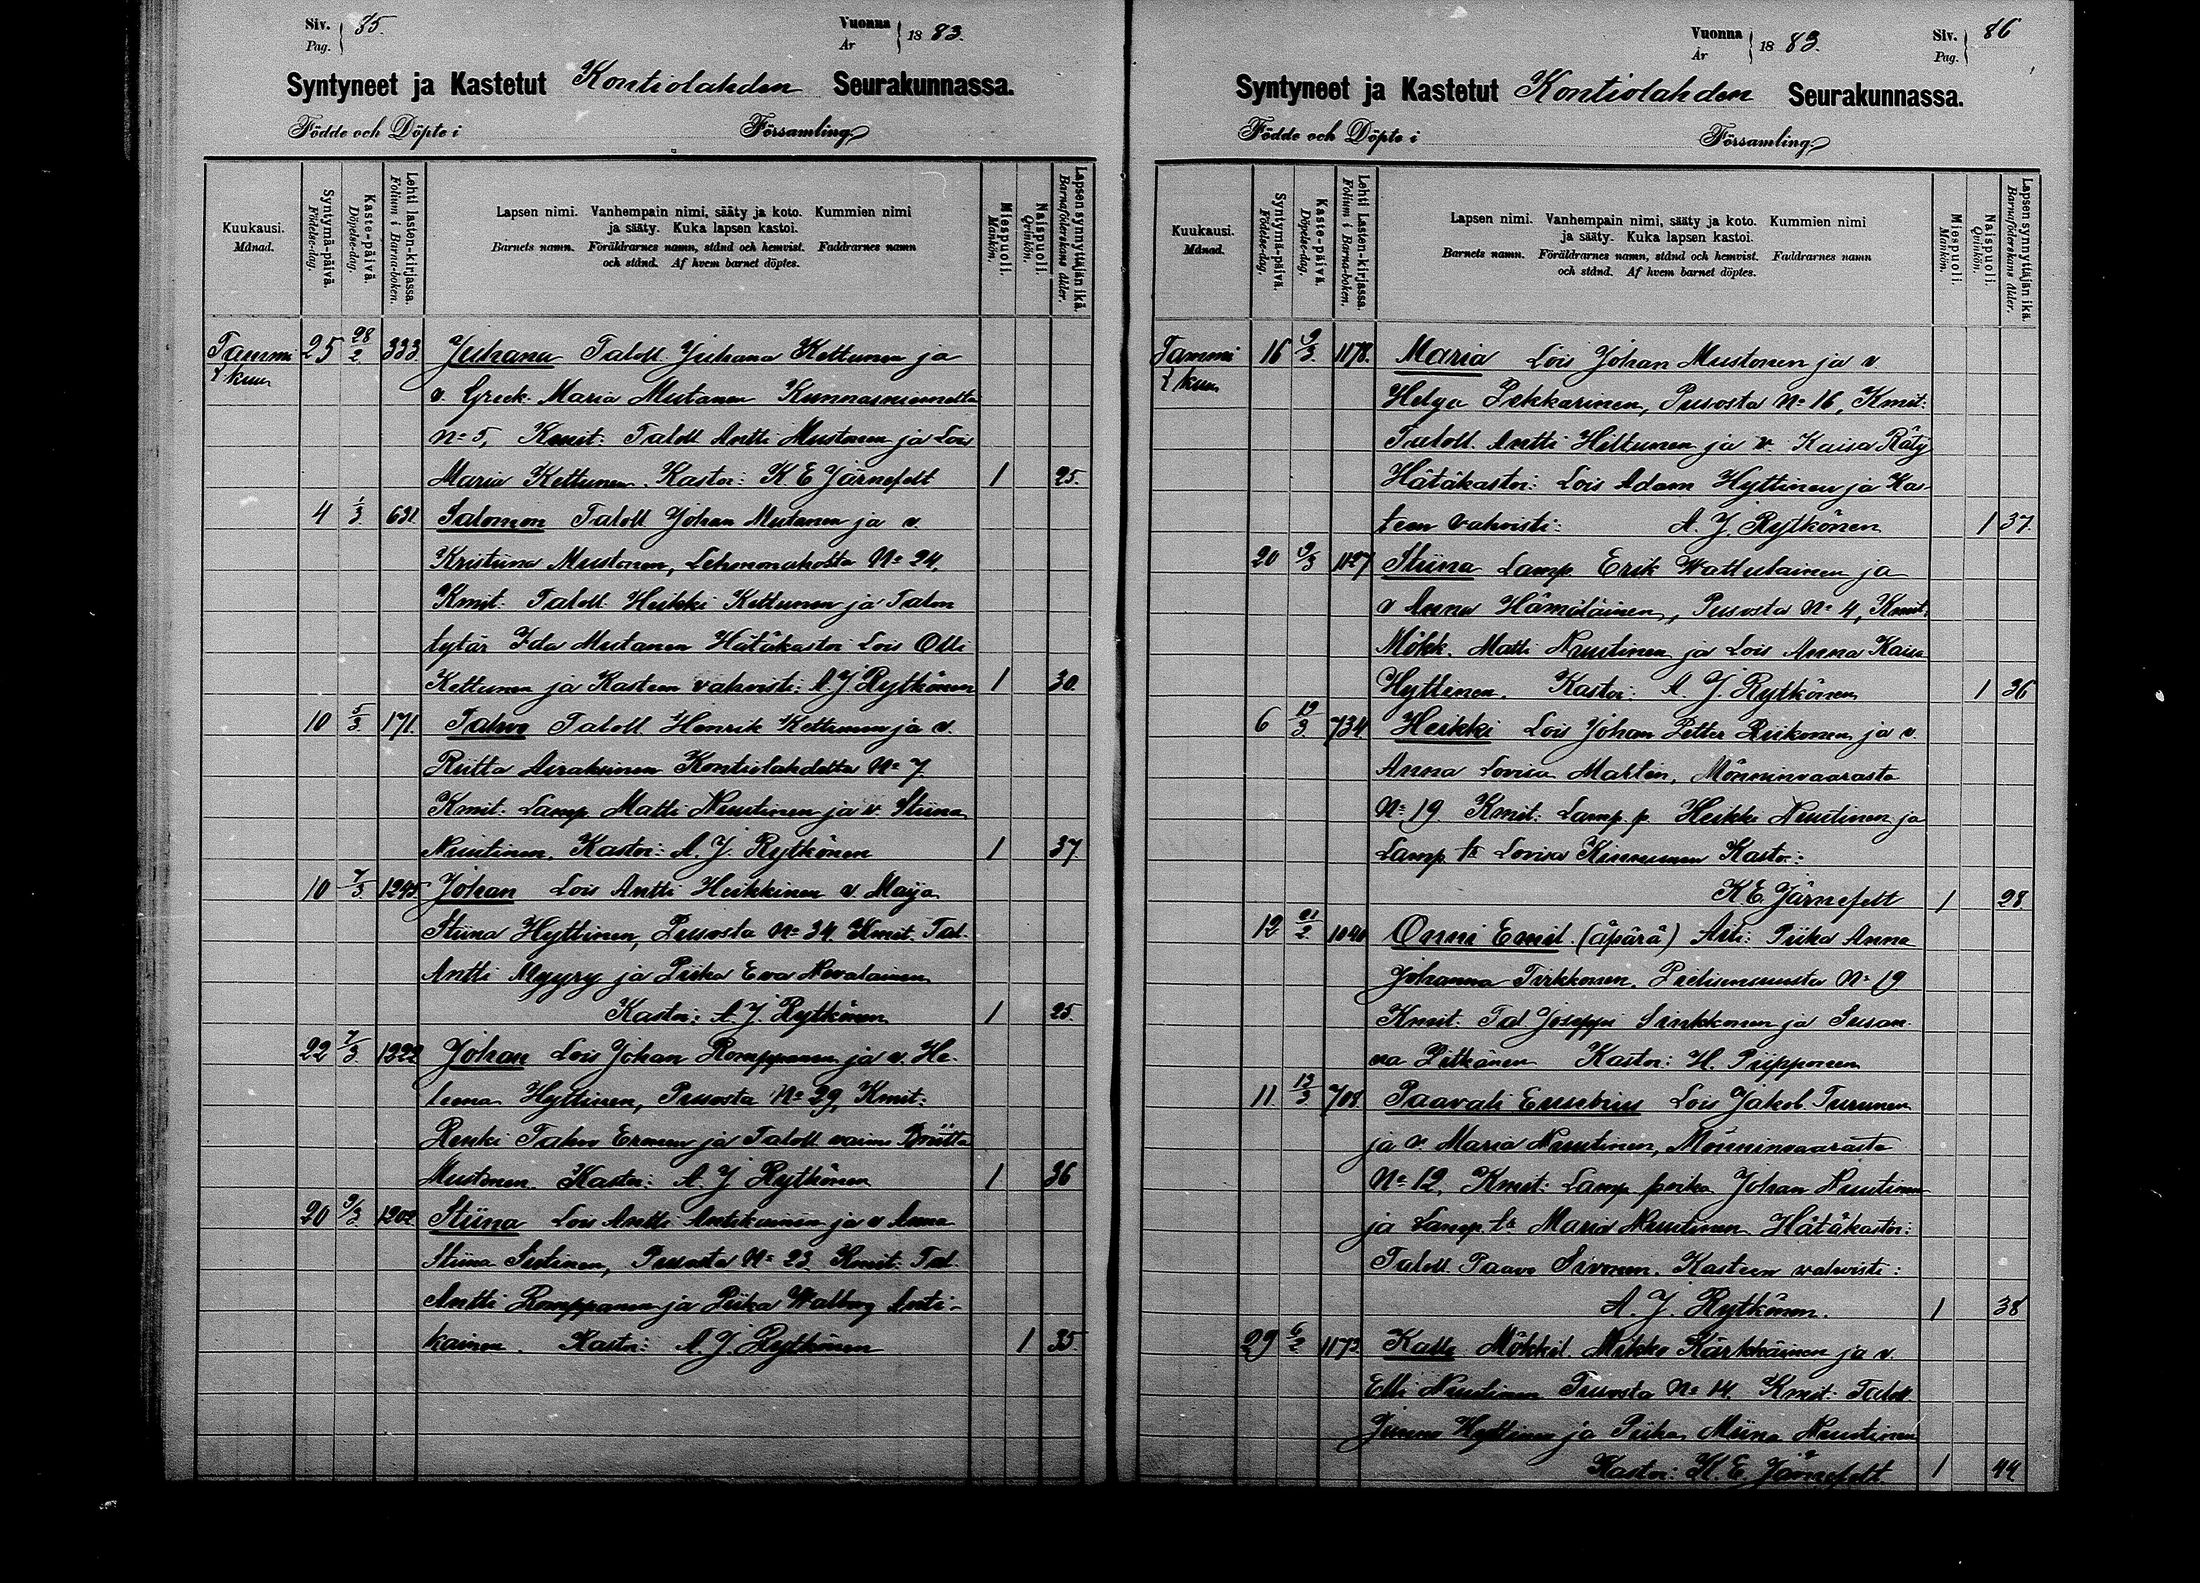 Siv. 85. Vuonna 1883.
Pag. År
Syntyneet ja Kastetut Kontiolahden Seurakunnassa.
Födde och Döpte i Församling
Kuukausi. Månad.
Syntymä-päivä. Födelse-dag.
Kaste-päivä. Döpelse-dag.
Lehti lasten-kirjassa. Folium i Barna-boken.
Lapsen nimi. Vanhempain nimi, sääty ja koto. Kummien nimi
ja sääty. Kuka lapsen kastoi.
Barnets namn. Föräldrarnes namn, stånd och hemvist. Faddrarnes namn
och stånd. Af hvem barnet döptes.
Miespuoli. Mankön.
Naispuoli. Qvinkön.
Lapsen synnyttäjän ikä. Barnaföderskans ålder.
Tammi 25 28/2 333 Juhana Taloll Juhana Kettunen ja
kuu v. Greek. Maria Mutanen
No 5, Kmit: Taloll Antti Mustonen ja Lois
Maria Kettunen. Kastoi: K. E Järnefelt 1 25.
4 1/3 631 Salomon Taloll Johan Mutanen ja v.
Kristiina Mustonen, Lehmonaholta No 24,
Kmit: Taloll Heikki Kettunen ja Talon
tytär Ida Mutanen Hätäkastoi Lois Olli
Kettunen ja Kasteen vahvisti: A. J Rytkönen 1 30.
10 5/3 171. Tahvo Taloll Henrik Kettunen ja v.
Riitta Airaksinen Kontiolahdelta No 7
Kmit: Lamp Matti Nuutinen ja v. Stiina
Nuutinen. Kastoi: A. J. Rytkönen 1 37
10 7/3 1245 Johan Lois Antti Heikkinen v Maija
Stiina Hyttinen, Pusosta No 34. Kmit. Tal.
Antti Myyry ja Piika Eva Nevalainen
Kastoi: A. J. Rytkönen 1 25.
22 7/3 1222 Johan Lois Johan Romppanen ja v. He-
leena Hyttinen, Pusosta No 29, Kmit:
Renki Tahvo Eronen ja Taloll vaimo
Mustonen. Kastoi: A. J Rytkönen 1 36
20 9/3 1202 Stiina Lois Antti Antikainen ja v Anna
Stiina Sutinen, Pusosta No 23. Kmit: Tal.
Antti Romppanen ja Piika Walborg Anti-
kainen. Kastoi: A. J Rytkönen 1 35.
Vuonna 1883. Siv. 86
År Pag.
Syntyneet ja Kastetut Kontiolahden Seurakunnassa.
Födde och Döpte i Församling
Kuukausi. Månad.
Syntymä-päivä. Födelse-dag.
Kaste-päivä. Döpelse-dag.
Lehti Lasten-kirjassa. Folium i Barna-boken.
Lapsen nimi. Vanhempain nimi, sääty ja koto. Kummien nimi
ja sääty. Kuka lapsen kastoi.
Barnets namn. Föräldrarnes namn, stånd och hemvist. Faddrarnes namn
och stånd. Af hvem barnet döptes.
Miespuoli. Mankön.
Naispuoli. Qvinkön.
Lapsen synnyttäjän ikä. Barnaföderskans ålder.
Tammi 16 9/3 1178. Maria Lois Johan Mustonen ja v.
kuu Helga Pekkarinen, Pusosta No 16, Kmit:
Taloll. Antti Hiltunen ja v. Kaisa Räty
Hätäkastoi: Lois Adam Hyttinen ja Kas-
teen vahvisti: A. J. Rytkönen 1 37.
20 9/3 1127 Stiina Lamp. Erik Wattulainen ja
v Anna Hämäläinen, Pusosta No 4, Kmit.
Mökk. Matti Nuutinen ja Lois Anna Kaisa
Hyttinen. Kastoi: A. J. Rytkönen 1 36
6 19/3 734 Heikki Lois Johan Petter Riikonen ja v.
Anna Lovisa Martin, Mönninvaarasta
No 19 Kmit: Lamp. p. Heikki Nuutinen ja
Lamp tr Lovisa Kinnunen Kastoi:
K. E. Järnefelt 1 28.
12 21/2 1040 Onni Emil. (äpärä) Äiti: Piika Anna
Johanna Tirkkonen. Pielisensuusta No 19
Kmit: Tal Joseppi Sirkkonen ja Susan-
na Pitkänen Kastoi: H. Piipponen
11 13/3 708. Paavali Eusebius Lois Jakob Turunen
ja v. Maria Nuutinen, Mönninvaarasta
No 12, Kmit: Lamp. poika Johan Nuutinen
ja Lamp. tr Maria Nuutinen Hätäkastoi:
Taloll. Paavo Sivonen. Kasteen vahvisti:
A. J. Rytkönen. 1 38
29 6/2 1172 Kalle Mökkil. Mikko Kärkkäinen ja v.
Elli Nuutinen Pusosta No 14. Kmit: Taloll.
Hyttinen ja Piika Miina Nuutinen
Kastoi: K. E. Järnefelt 1 44